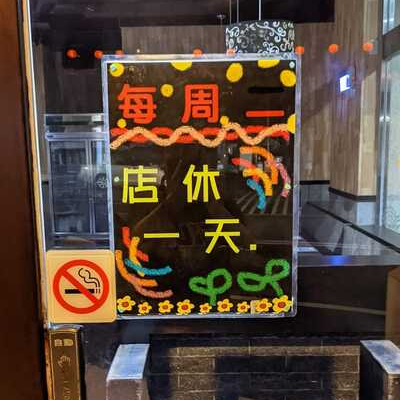 每周二
店休
一天.